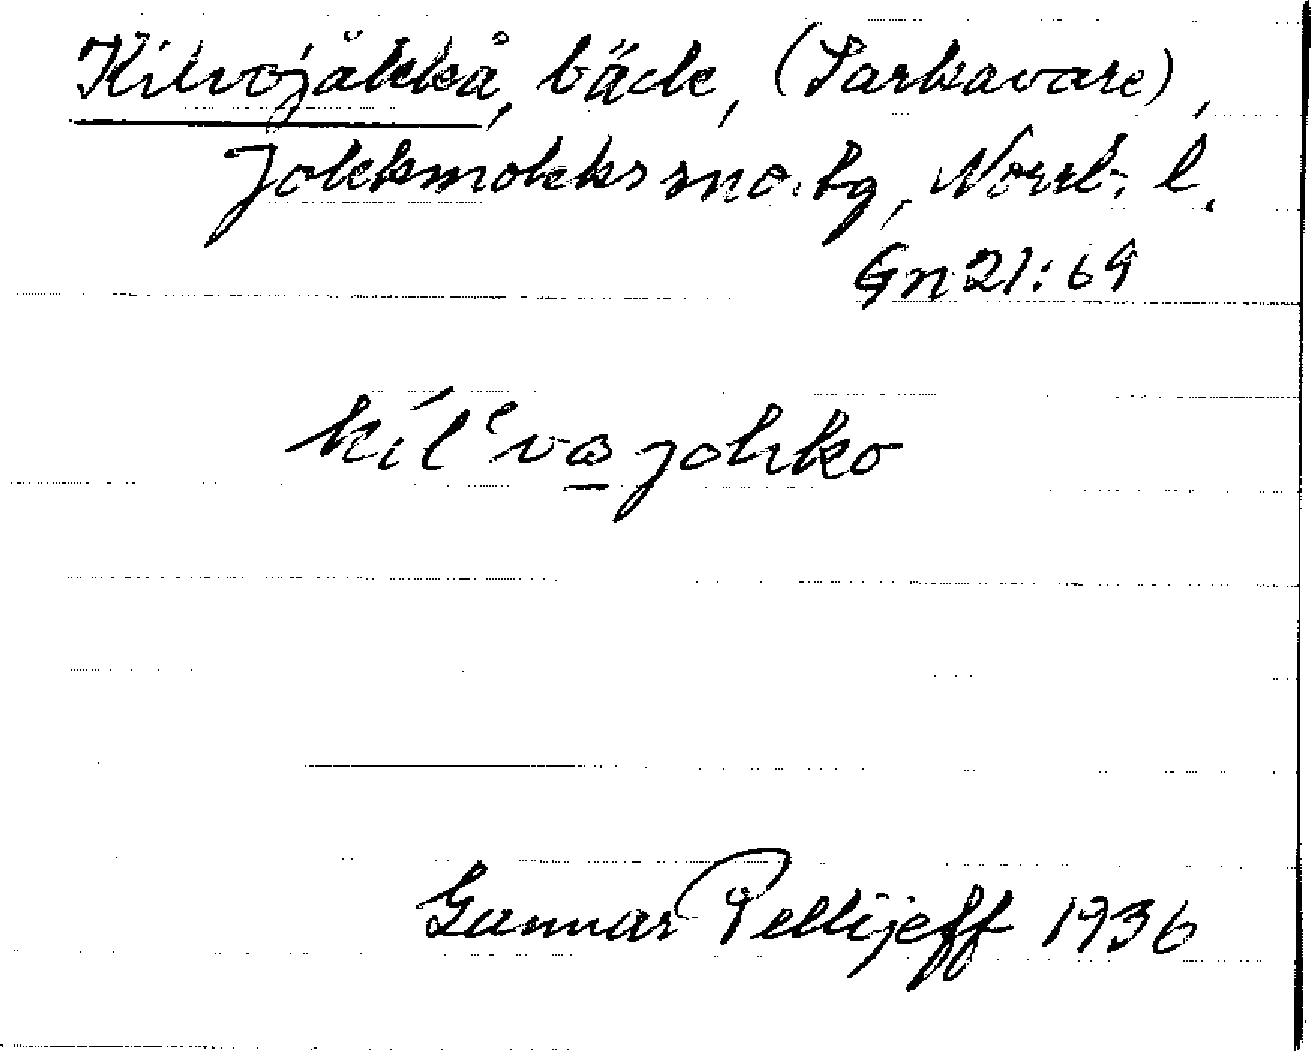 Kilvojåkkå, bäck, (Sarkavare),
Jokkmokks sno. tg, Norrb. l.
Gn 21:69
kil'vɑjohko
Gunnar Pellijeff 1936